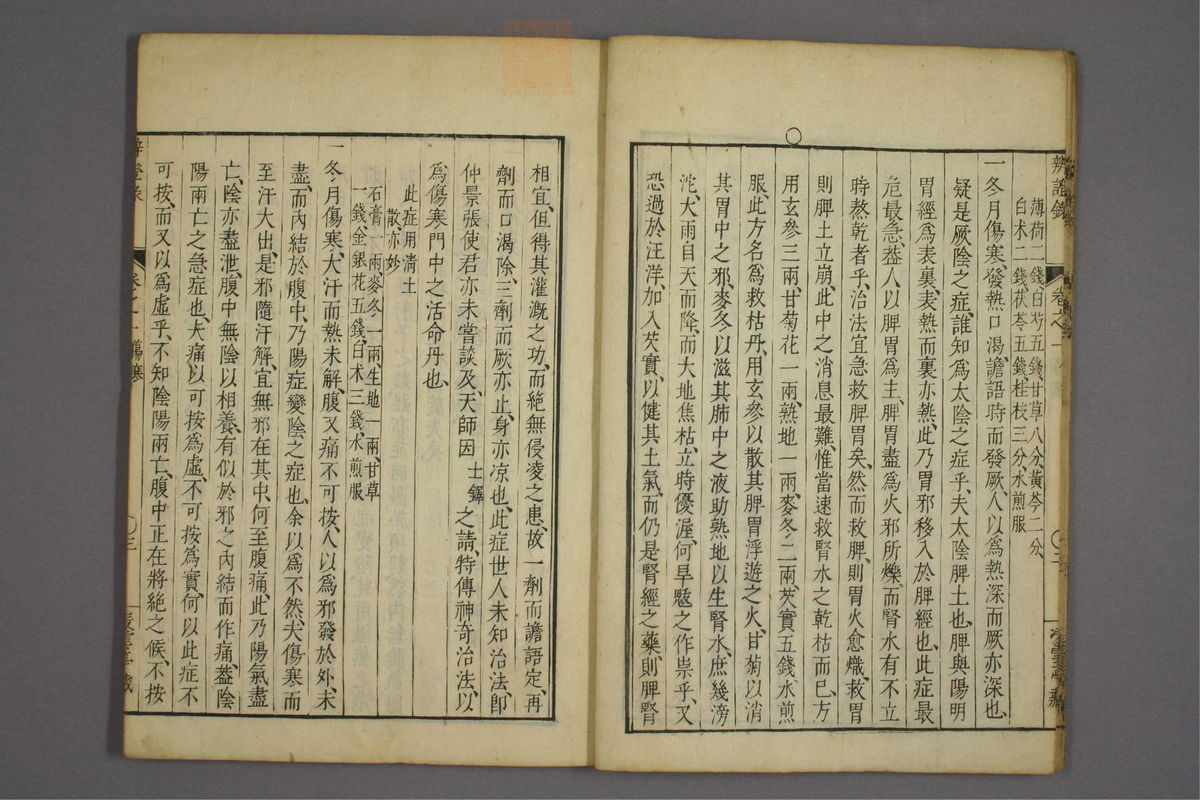 辨證錄
卷之一
薄荷二錢白芍五錢甘草八分黃芩二分、
白术二錢茯苓五錢桂枝三分水煎服
一冬月傷寒、發熱口渴、譫語時而發厥、人以為熱深而厥亦深也、
疑是厥陰之症、誰知為太陰之症乎、夫太陰脾土也、脾與陽明
胃經為表裏、表熱而裏亦熱、此乃胃邪移入於脾經也、此症最
危最急、蓋人以脾胃為主、脾胃盡為火邪所爍、而腎水有不立
時熬乾者乎、治法宜急救脾胃矣、然而救脾、則胃火愈熾、救胃
則脾土立崩、此中之消息最難、惟當速救腎水之乾枯而已、方
用玄參三兩、甘菊花一兩、熟地一兩、麥冬二兩、芡實五錢水煎
服、此方名為救枯丹、用玄參以散其脾胃浮遊之火、甘菊以消
其胃中之邪、麥冬以滋其肺中之液、助熟地以生腎水、庶幾滂
沱、大雨自天而降、而大地焦枯、立時優渥、何旱魃之作祟乎、又
恐過於汪洋、加入芡實、以健其土氣、而仍是腎經之藥、則脾腎
相宜、但得其灌溉之功、而絕無侵凌之患、故一劑而譫語定、再
劑而口渴除、三劑而厥亦止、身亦凉也、此症世人未知治法、即
仲景張使君亦未嘗談及、天師因士鐸之請、特傳神奇治法、以
為傷寒門中之活命丹也、
此症用清土
散、亦妙
石膏一兩、麥冬一兩、生地一兩、甘草
一錢、金銀花五錢、白术三錢水煎服
一冬月傷寒、大汗而熱未解、腹又痛不可按、人以為邪發於外、未
盡、而內結於腹中、乃陽症變陰之症也、余以為不然、夫傷寒而
至汗大出、是邪隨汗解、宜無邪在其中、何至腹痛、此乃陽氣盡
亡、陰亦盡泄、腹中無陰以相養、有似於邪之內結而作痛、蓋陰
陽兩亡之急症也、夫痛以可按為虛、不可按為實、何以此症不
可按、而又以為虛乎、不知陰陽兩亡、腹中正在將絕之候、不按
卷之一 傷寒
三